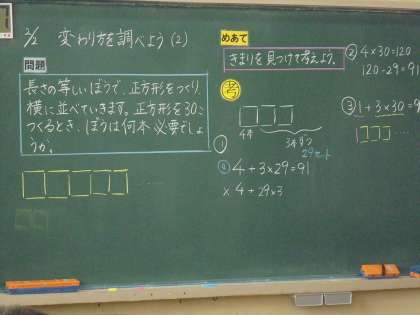 2/2 変わり方を調べよう(2)
問題
長さの等しいぼうで、正方形をつくり、
横に並べていきます。正方形を30こ
つくるとき、ぼうは何本必要でしょ
うか。
めあて
きまりを見つけて考えよう。
考
4本
3本ずつ
29セット
①
4+3×29=91
× 4+29×3
② 4×30=120
120-29=91
③ 1+3×30=91